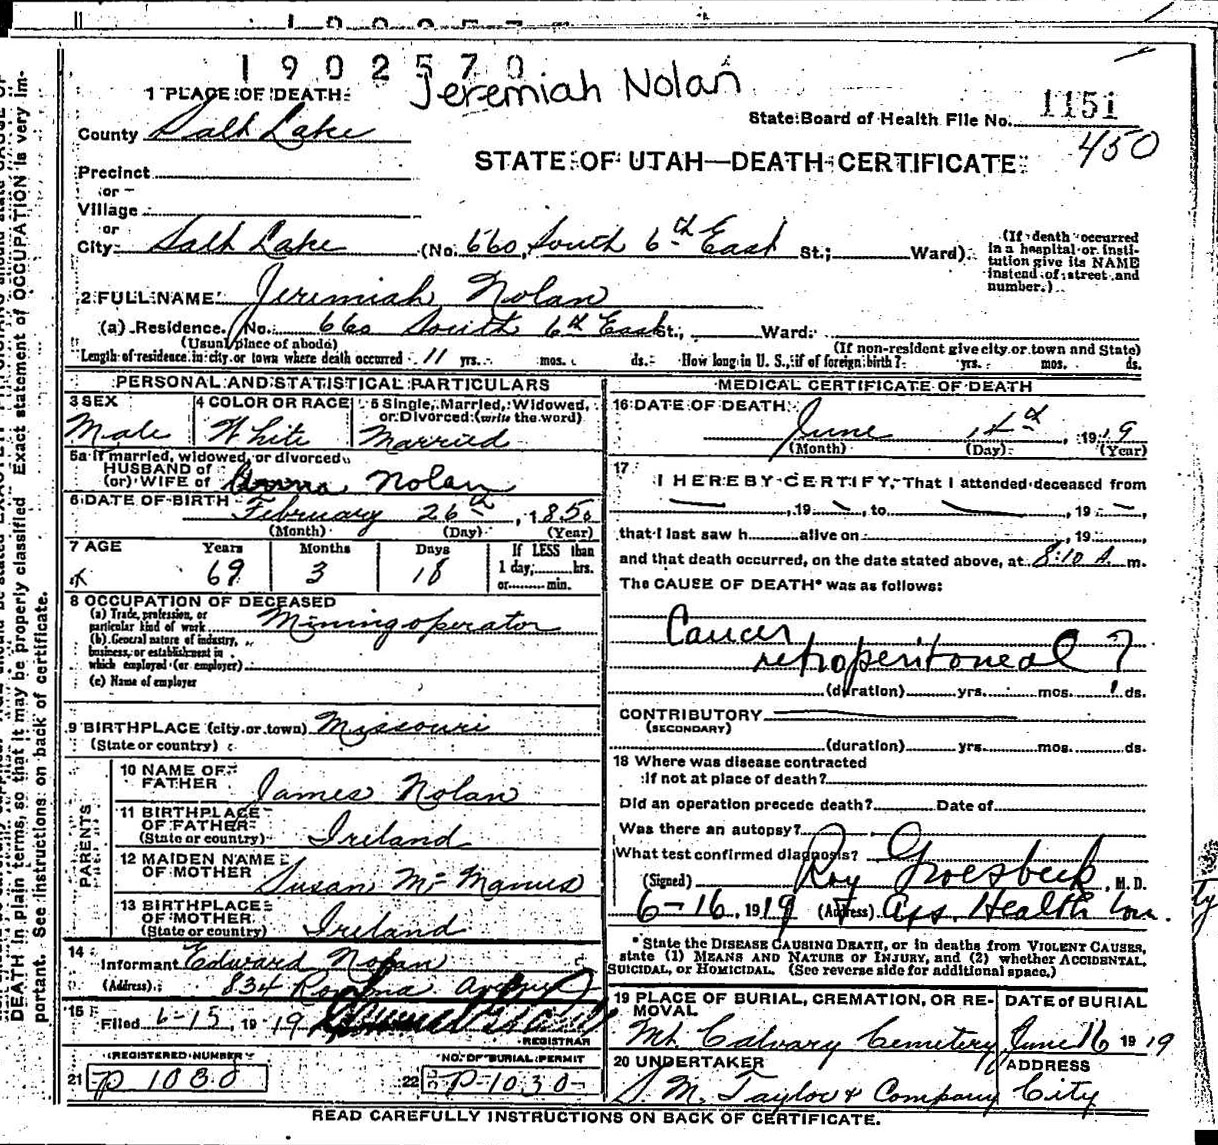 1902570
Jeremiah Nolan
1 PLACE OF DEATH
State Board of Health File No. 1151
County Salt Lake
450
STATE OF UTAH—DEATH CERTIFICATE
Precinct
or
Village
or
City Salt Lake (No. 660 South 6th East St.; Ward)
(If death occurred
in a hospital or insti-
tution give its NAME
instead of street and
number.)
2 FULL NAME Jeremiah Nolan
(a) Residence. No. 660 South 6th East St., Ward.
(Usual place of abode) (If non-resident give city or town and State)
Length of residence in city or town where death occurred 11 yrs. mos. ds. How long in U. S., if of foreign birth? yrs. mos. ds.
PERSONAL AND STATISTICAL PARTICULARS
3 SEX
Male
4 COLOR OR RACE
White
5 Single, Married, Widowed,
or Divorced (write the word)
Married
5a If married, widowed, or divorced
HUSBAND of
(or) WIFE of Anna Nolan
6 DATE OF BIRTH February 26th, 1850
(Month) (Day) (Year)
7 AGE Years Months Days If LESS than
1 day, hrs.
or min.
69 3 18
8 OCCUPATION OF DECEASED
(a) Trade, profession, or
particular kind of work Mining operator
(b) General nature of industry,
business, or establishment in
which employed (or employer)
(c) Name of employer
9 BIRTHPLACE (city or town) Missouri
(State or country)
PARENTS
10 NAME OF
FATHER James Nolan
11 BIRTHPLACE
OF FATHER
(State or country) Ireland
12 MAIDEN NAME
OF MOTHER Susan McManus
13 BIRTHPLACE
OF MOTHER
(State or country) Ireland
14
Informant Edward Nolan
(Address) 834
15
Filed 6-15, 1919
REGISTRAR
REGISTERED NUMBER
21 P 1030
NO. OF BURIAL PERMIT
22 P-1030
MEDICAL CERTIFICATE OF DEATH
16 DATE OF DEATH
June , 1919
(Month) (Day) (Year)
17
I HEREBY CERTIFY, That I attended deceased from
, 19 , to , 19
that I last saw h alive on , 19
and that death occurred, on the date stated above, at 8:10 A. m.
The CAUSE OF DEATH* was as follows:
Cancer
retroperitoneal ?
(duration) yrs. mos. ds.
CONTRIBUTORY
(SECONDARY)
(duration) yrs. mos. ds.
18 Where was disease contracted
if not at place of death?
Did an operation precede death? Date of
Was there an autopsy?
What test confirmed diagnosis?
(Signed) Roy Groesbeck, M. D.
6-16, 1919 (Address) Health
*State the DISEASE CAUSING DEATH, or in deaths from VIOLENT CAUSES,
state (1) MEANS AND NATURE OF INJURY, and (2) whether ACCIDENTAL,
SUICIDAL, or HOMICIDAL. (See reverse side for additional space.)
19 PLACE OF BURIAL, CREMATION, OR RE-
MOVAL
Mt. Calvary Cemetery
DATE of BURIAL
June 16 1919
20 UNDERTAKER
S. M. Taylor & Company
ADDRESS
City
READ CAREFULLY INSTRUCTIONS ON BACK OF CERTIFICATE.
Exact statement of OCCUPATION is very im-
DEATH in plain terms, so that it may be properly classified
portant. See instructions on back of certificate.